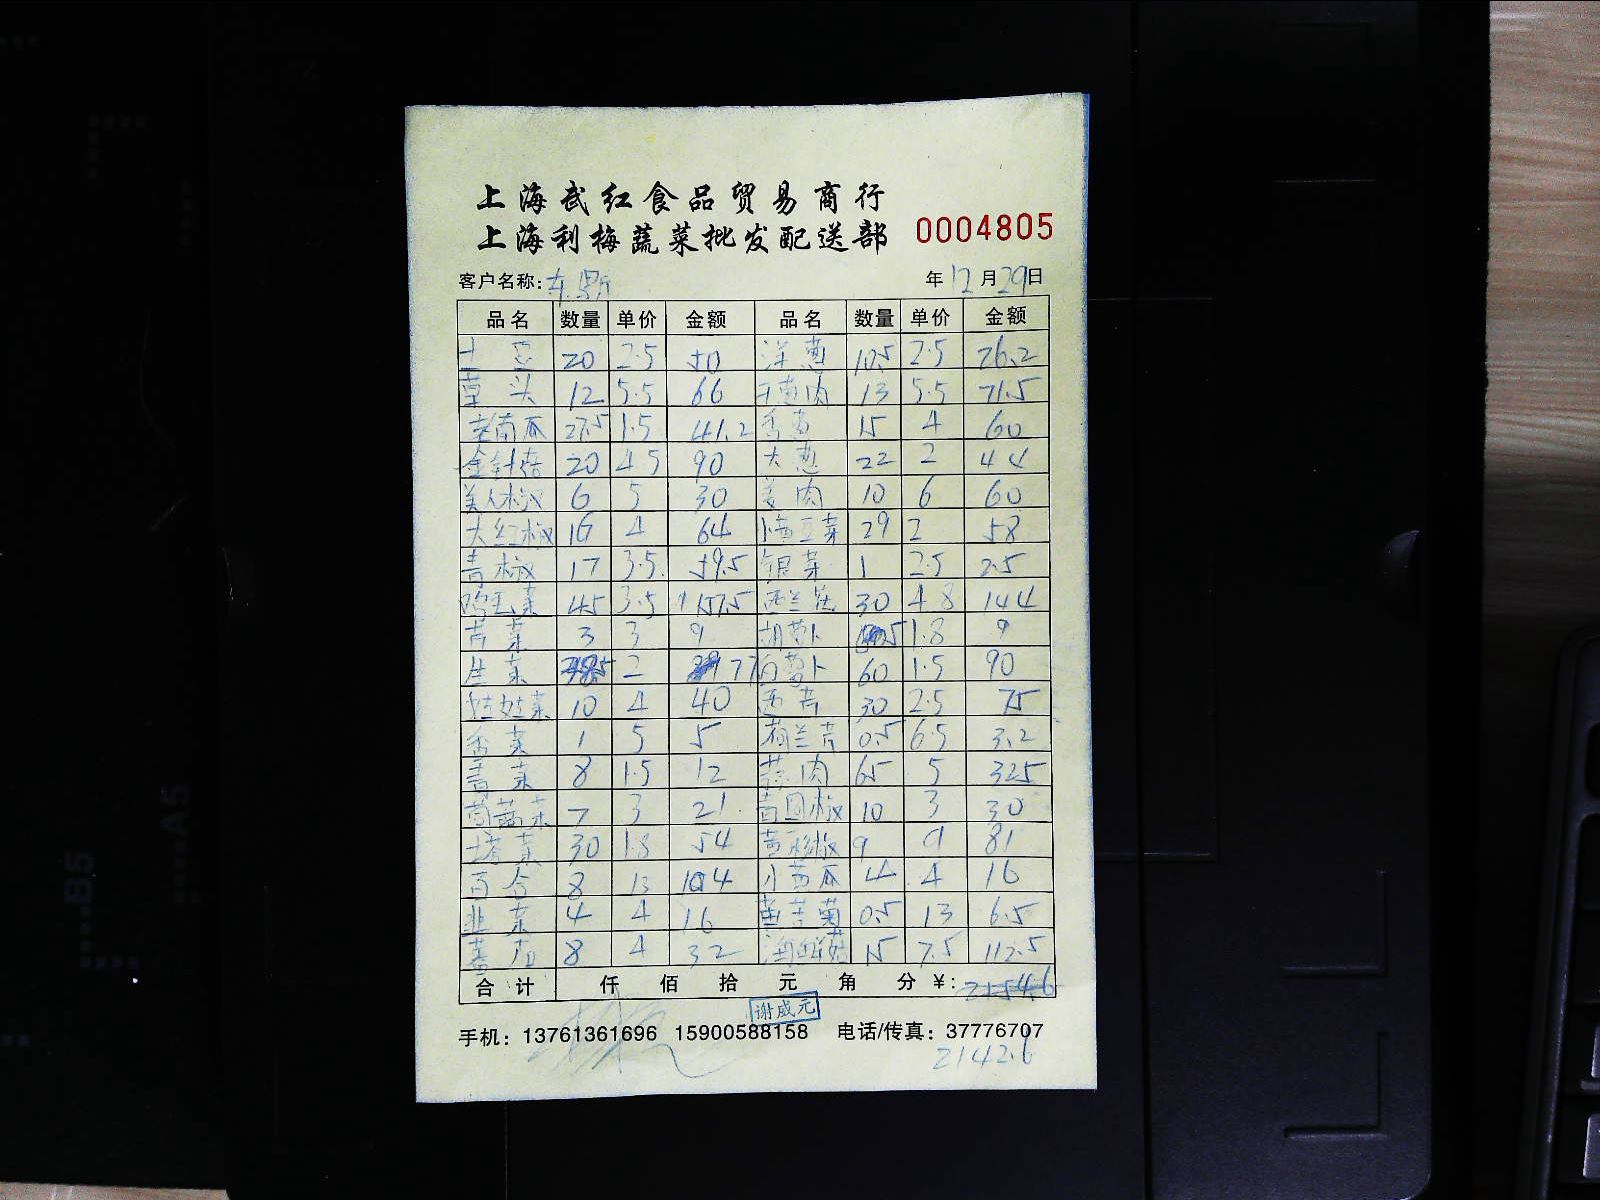 上海武红食品贸易商行
上海利梅蔬菜批发配送部 0004805
客户名称: 年12月29日
品名 数量 单价 金额 品名 数量 单价 金额
土豆 20 2.5 50 洋葱 10.5 2.5 26.2
草头 12 5.5 66 13 5.5 71.5
27.5 1.5 41.2 15 4 60
金针菇 20 4.5 90 大葱 22 2 44
美人椒 6 5 30 姜肉 10 6 60
大红椒 16 4 64 29 2 58
青椒 17 3.5 59.5 银菜 1 2.5 2.5
鸡毛菜 45 3.5 157.5 西兰花 30 4.8 144
芹菜 3 3 9 胡萝卜 5 1.8 9
生菜 2 77 白萝卜 60 1.5 90
娃娃菜 10 4 40 西芹 30 2.5 75
香菜 1 5 5 荷兰芹 0.5 6.5 3.2
青菜 8 1.5 12 蒜肉 65 5 325
茼蒿菜 7 3 21 青圆椒 10 3 30
塔菜 30 1.8 54 黄彩椒 9 9 81
百合 8 13 104 小黄瓜 4 4 16
韭菜 4 4 16 苦菊 0.5 13 6.5
8 4 32 海鲜菇 15 7.5 112.5
合计 仟 佰 拾 元 角 分 ¥: 2154.6
谢威元
手机: 13761361696 15900588158 电话/传真: 37776707
2142.6